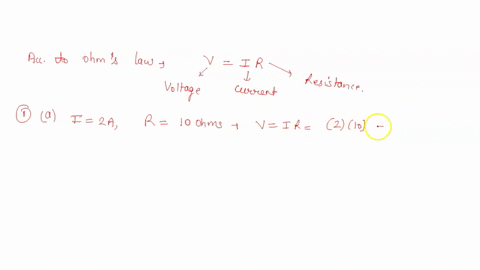 Acc. to ohm's law, V = I R
Voltage current Resistance.
① (a) I = 2A, R = 10 ohms, V = I R = (2) (10) -